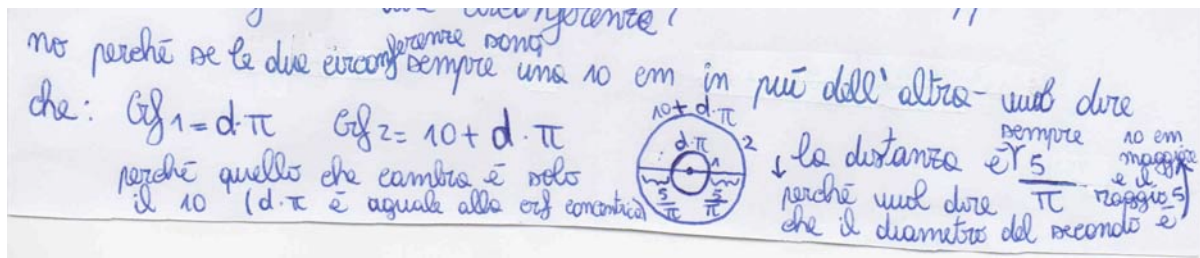 due circonferenze?
no perché se le due circonferenze sono sempre una 10 cm in più dell'altra - vuol dire
che: Crf 1 = d·π Crf 2 = 10 + d·π
perché quello che cambia è solo
il 10 (d·π è aguale alla crf concentrica)
10 + d·π
d·π
2
1
5/π 5/π
↓ la distanza è sempre 5/π
perché vuol dire
che il diametro del secondo è
10 cm
maggiore
e il
raggio 5